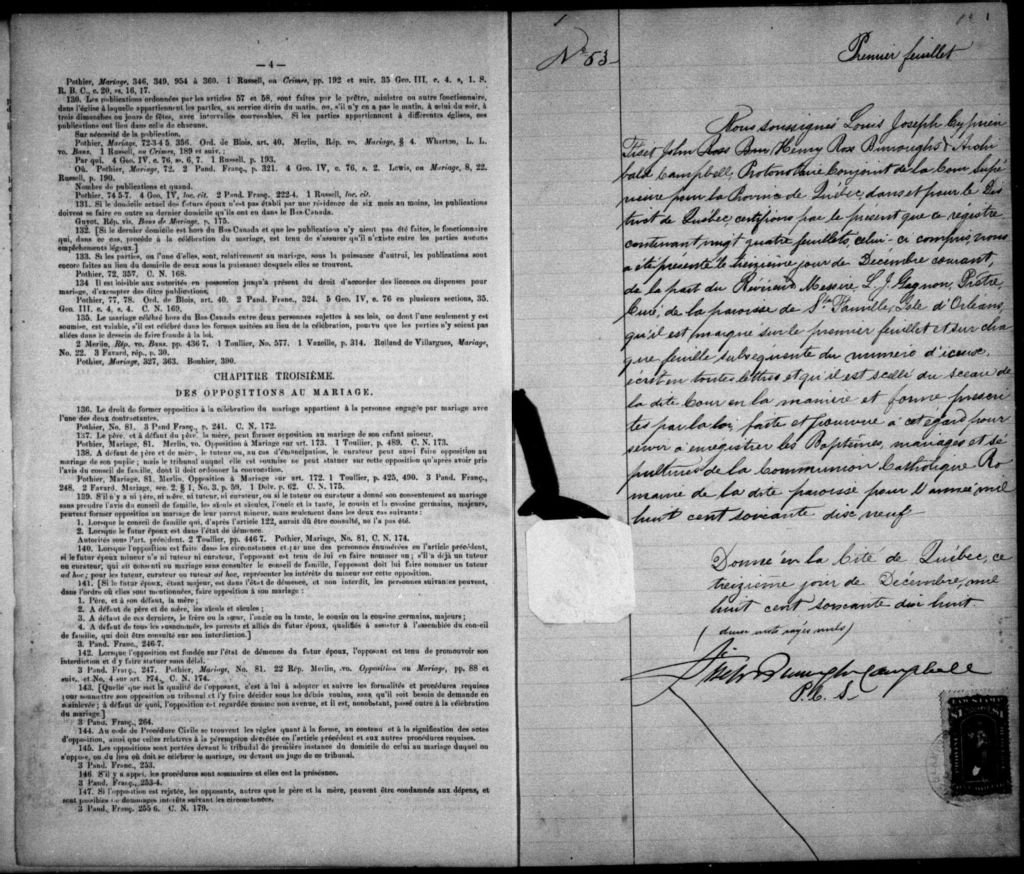 — 4 —
Pothier, Mariage, 346, 349, 954 à 360. 1 Russell, on Crimes, pp. 192 et suiv. 35 Geo. III, c. 4, s, 1. S.
R. B. C., c. 20, ss. 16, 17.
130. Les publications ordonnées par les articles 57 et 58, sont faites par le prêtre, ministre ou autre fonctionnaire,
dans l'église à laquelle appartiennent les parties, au service divin du matin, ou, s'il n'y en a pas le matin, à celui du soir, à
trois dimanches ou jours de fêtes, avec intervalles convenables. Si les parties appartiennent à différentes églises, ces
publications ont lieu dans celle de chacune.
Sur nécessité de la publication.
Pothier, Mariage, 72-3-4 5, 356. Ord. de Blois, art. 40. Merlin, Rép. vo. Mariage, § 4. Wharton, L. L.
vo. Bans. 1 Russell, on Crimes, 189 et suiv.;
Par qui. 4 Geo. IV, c. 76, ss. 6, 7. 1 Russell, p. 193.
Où. Pothier, Mariage, 72. 2 Pand. Franç., p. 321. 4 Geo. IV, c. 76, s. 2. Lewis, on Mariage, 8, 22.
Russell, p. 190.
Nombre de publications et quand.
Pothier, 74 5-7. 4 Geo. IV, loc. cit. 2 Pand. Franç. 222-4. 1 Russell, loc. cit.
131. Si le domicile actuel des futurs époux n'est pas établi par une résidence de six mois au moins, les publications
doivent se faire en outre au dernier domicile qu'ils ont eu dans le Bas-Canada.
Guyot, Rép. vis. Bans de Mariage, p. 175.
132. [Si le dernier domicile est hors du Bas-Canada et que les publications n'y aient pas été faites, le fonctionnaire
qui, dans ce cas, procède à la célébration du mariage, est tenu de s'assurer qu'il n'existe entre les parties aucuns
empêchements légaux.]
133. Si les parties, ou l'une d'elles, sont, relativement au mariage, sous la puissance d'autrui, les publications sont
encore faites au lieu du domicile de ceux sous la puissance desquels elles se trouvent.
Pothier, 72, 357. C. N. 168.
134 Il est loisible aux autorités en possession jusqu'à présent du droit d'accorder des licences ou dispenses pour
mariage, d'exempter des dites publications.
Pothier, 77, 78. Ord. de Blois, art. 40. 2 Pand. Franc., 324. 5 Geo. IV, c. 76 en plusieurs sections, 35.
Geo. III. c. 4, s. 4. C. N. 169.
135. Le mariage célébré hors du Bas-Canada entre deux personnes sujettes à ses lois, ou dont l'une seulement y est
soumise, est valable, s'il est célébré dans les formes usitées au lieu de la célébration, pourvu que les parties n'y soient pas
allées dans le dessein de faire fraude à la loi.
2 Merlin, Rép. vo. Bans. pp. 436 7. 1 Toullier, No. 577. 1 Vazeille, p. 314. Rolland de Villargues, Mariage,
No. 22. 3 Favard, rép., p. 30.
Pothier, Mariage, 327, 363. Bouhier, 390.
CHAPITRE TROISIÈME.
DES OPPOSITIONS AU MARIAGE.
136. Le droit de former opposition à la célébration du mariage appartient à la personne engagée par mariage avec
l'une des deux contractantes.
Pothier, No. 81. 3 Pand Franç., p. 241. C. N. 172.
137. Le père, et à défaut du père, la mère, peut former opposition au mariage de son enfant mineur.
Pothier, Mariage, 81. Merlin, vo. Opposition à Mariage sur art. 173. 1 Toullier, p. 489. C. N. 173.
138. A défaut de père et de mère, le tuteur ou, au cas d'émancipation, le curateur peut aussi faire opposition au
mariage de son pupile; mais le tribunal auquel elle est soumise ne peut statuer sur cette opposition qu'après avoir pris
l'avis du conseil de famille, dont il doit ordonner la convocation.
Pothier, Mariage, 81. Merlin, Opposition à Mariage sur art. 172. 1 Toullier, p. 425, 490. 3 Pand. Franç.,
248. 2 Favard, Mariage, sec. 2. § 1, No. 3, p. 59. 1 Delv. p. 62. C. N. 175.
139. S'il n'y a ni père, ni mère, ni tuteur, ni curateur, ou si le tuteur ou curateur a donné son consentement au mariage
sans prendre l'avis du conseil de famille, les aïeuls et aïeules, l'oncle et la tante, le cousin et la cousine germains, majeurs,
peuvent former opposition au mariage de leur parent mineur, mais seulement dans les deux cas suivants:
1. Lorsque le conseil de famille qui, d'après l'article 122, aurait dû être consulté, ne l'a pas été.
2. Lorsque le futur époux est dans l'état de démence.
Autorités sous l'art. précédent. 2 Toullier, pp. 446 7. Pothier, Mariage, No. 81, C. N. 174.
140. Lorsque l'opposition est faite dans les circonstances et par une des personnes énumérées en l'article précédent,
si le futur époux mineur n'a ni tuteur ni curateur, l'opposant est tenu de lui en faire nommer un; s'il a déjà un tuteur
ou curateur, qui ait consenti au mariage sans consulter le conseil de famille, l'opposant doit lui faire nommer un tuteur
ad hoc; pour les tuteur, curateur ou tuteur ad hoc, représenter les intérêts du mineur sur cette opposition.
141. [Si le futur époux, étant majeur, est dans l'état de démence, et non interdit, les personnes suivantes peuvent,
dans l'ordre où elles sont mentionnées, faire opposition à son mariage:
1. Père, et à son défaut, la mère;
2. A défaut de père et de mère, les aïeuls et aïeules;
3. A défaut de ces derniers, le frère ou la sœur, l'oncle ou la tante, le cousin ou la cousine germains, majeurs;
4. A défaut de tous les susnommés, les parents et alliés du futur époux, qualifiés à assister à l'assemblée du conseil
de famille, qui doit être consulté sur son interdiction.]
3. Pand. Franc., 246-7.
142. Lorsque l'opposition est fondée sur l'état de démence du futur époux, l'opposant est tenu de promouvoir son
interdiction et d'y faire statuer sans délai.
3 Pand. Franç., 247. Pothier, Mariage, No. 81. 22 Rép. Merlin, vo. Opposition au Mariage, pp, 88 et
suiv. et No. 4 sur art. 174. C. N. 174.
143. [Quelle que soit la qualité de l'opposant, c'est à lui à adopter et suivre les formalités et procédures requises
pour soumettre son opposition au tribunal et l'y faire décider sous les délais voulus, sans qu'il soit besoin de demande en
mainlevée; à défaut de quoi, l'opposition est regardée comme non avenue, et il est, nonobstant, passé outre à la célébration
du mariage.]
3 Pand. Franç., 264.
144. Au code de Procédure Civile se trouvent les règles quant à la forme, au contenu et à la signification des actes
d'opposition, ainsi que celles relatives à la péremption décrétée en l'article précédent et aux autres procédures requises.
145. Les oppositions sont portées devant le tribunal de première instance du domicile de celui au mariage duquel on
s'oppose, ou du lieu où doit se célébrer le mariage, ou devant un juge de ce tribunal.
3 Pand. Franc., 253.
146. S'il y a appel, les procédures sont sommaires et elles ont la préséance.
3 Pand. Franç., 253-4.
147. Si l'opposition est rejetée, les opposants, autres que le père et la mère, peuvent être condamnés aux dépens, et
sont passibles de dommages intérêts suivant les circonstances.
3 Pand. Franç. 255 6. C. N. 179.
No 53
Premier feuillet
Nous soussignés Louis Joseph Cyprien
Fiset John Ross Burroughs & Archi
bald Campbell, Protonotaire Conjoint de la Cour Supé
rieure pour la Province de Québec, dans et pour le Dis
trict de Québec, certifions par le present que ce régistre
contenant vingt quatre feuillets, celui-ci compris, nous
a été présenté le treizième jour de Decembre courant,
de la part du Révérend Messire L. J. Gagnon, Prêtre,
Curé, de la paroisse de Ste Famille, Isle d'Orleans,
qu'il est marqué sur le premier feuillet et sur cha
que feuille subséquente du numero d'iceux,
écrit en toutes lettres et qu'il est scellé du sceau de
la dite Cour en la maniere et forme prescri
tes par la loi, faite et pourvue à cet egard pour
servir à enregistrer les Baptêmes, mariages et sé
pultures de la Communion Catholique Ro
maine de la dite paroisse pour l'année mil
huit cent soixante dix neuf
Donné en la Cité de Québec, ce
treizième jour de Decembre, mil
huit cent soixante dix huit
(deux mots rayés nuls)
Fiset Burroughs Campbell
P. C. S.
LAW STAMP